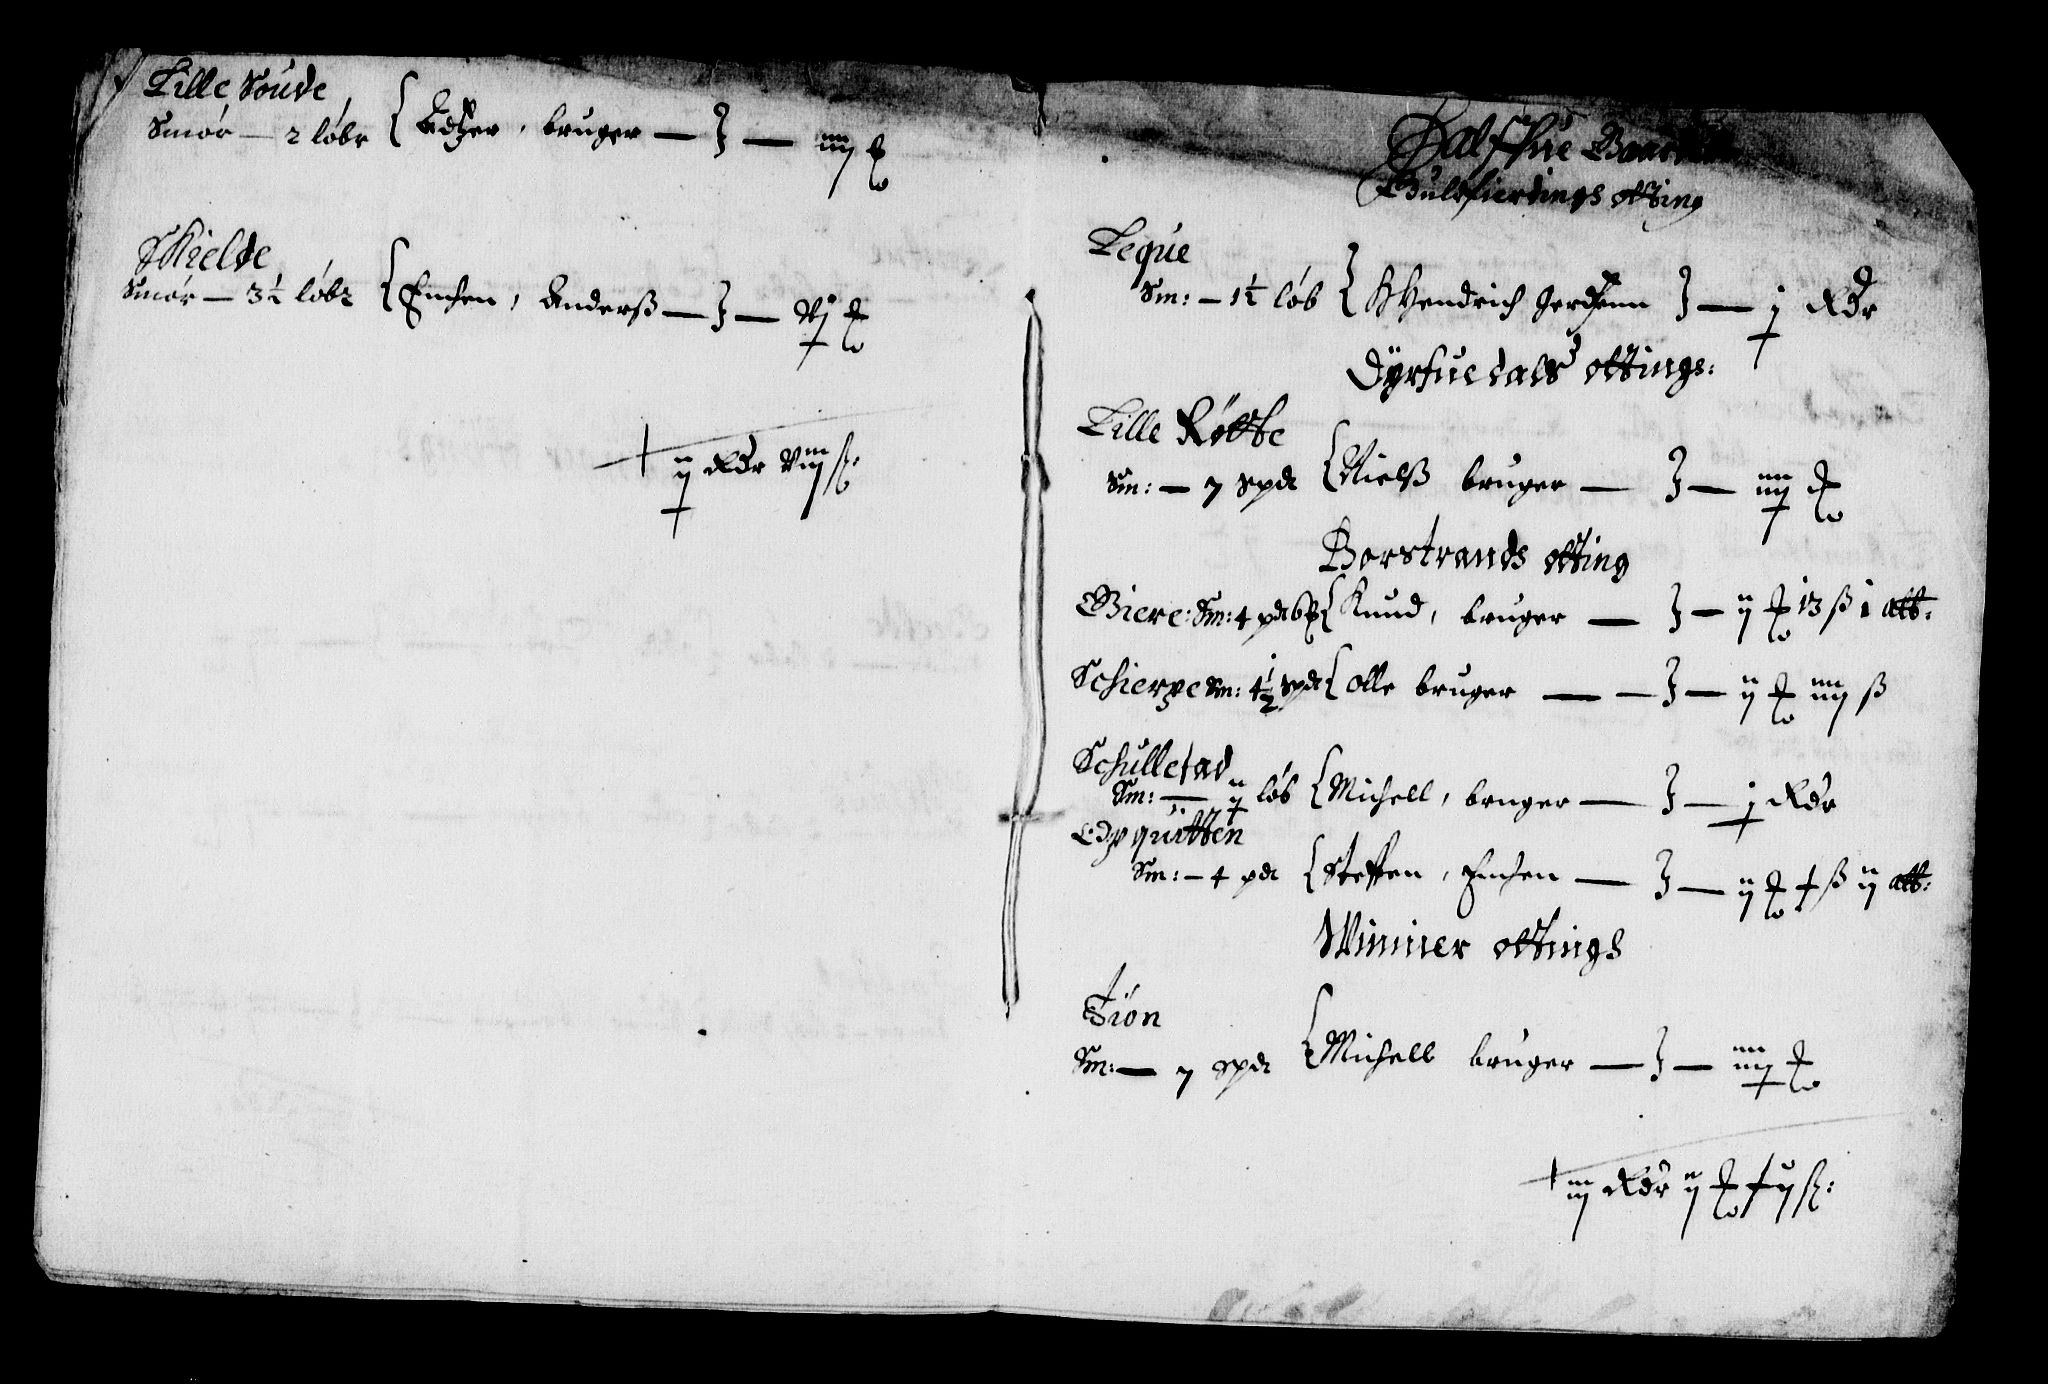 Lille Soude
Smör — 2 löbr { Edtzer, bruger — } — iiij
Skielde
Smör — 3½ löbr { Enchen, Anderß — } — vj
ij Rdr viij ß:
Dalssue
Guldfierdings otting
Leque
Sm: — 1½ löb { Hendrich } — j Rdr
Dyrfuedals ottings:
Lille Rötte
Sm: — 7 Spd { Nielß bruger — } — iiij
Borstrands otting
Giere: Sm: 4 pd { Knud, bruger — } — ij 13 ß i alb:
Schierpe Sm: 4½ Spd { Olle bruger — — } — ij iiij ß
Schullestad
Sm: — ij löb { Michell, bruger — } — j Rdr
quitten
Sm: — 4 pd { Steffen, Enchen — } — ij ß ij alb:
Winner ottings
Fiön
Sm: — 7 Spd { Michell bruger — } — iiij
iiij Rdr ij ß: